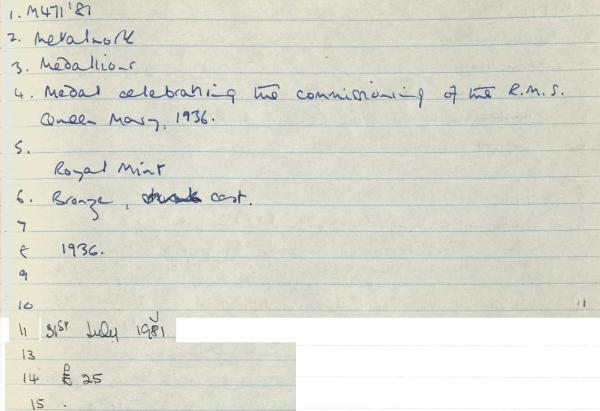 1. M471'81
2. Metalwork
3. Medallions
4. Medal celebrating the commissioning of the R.M.S.
Queen Mary, 1936.
5.
Royal Mint
6. Bronze, cast.
7
8 1936.
9
10
11 31st July 1981
13
14 £ 25
15 .